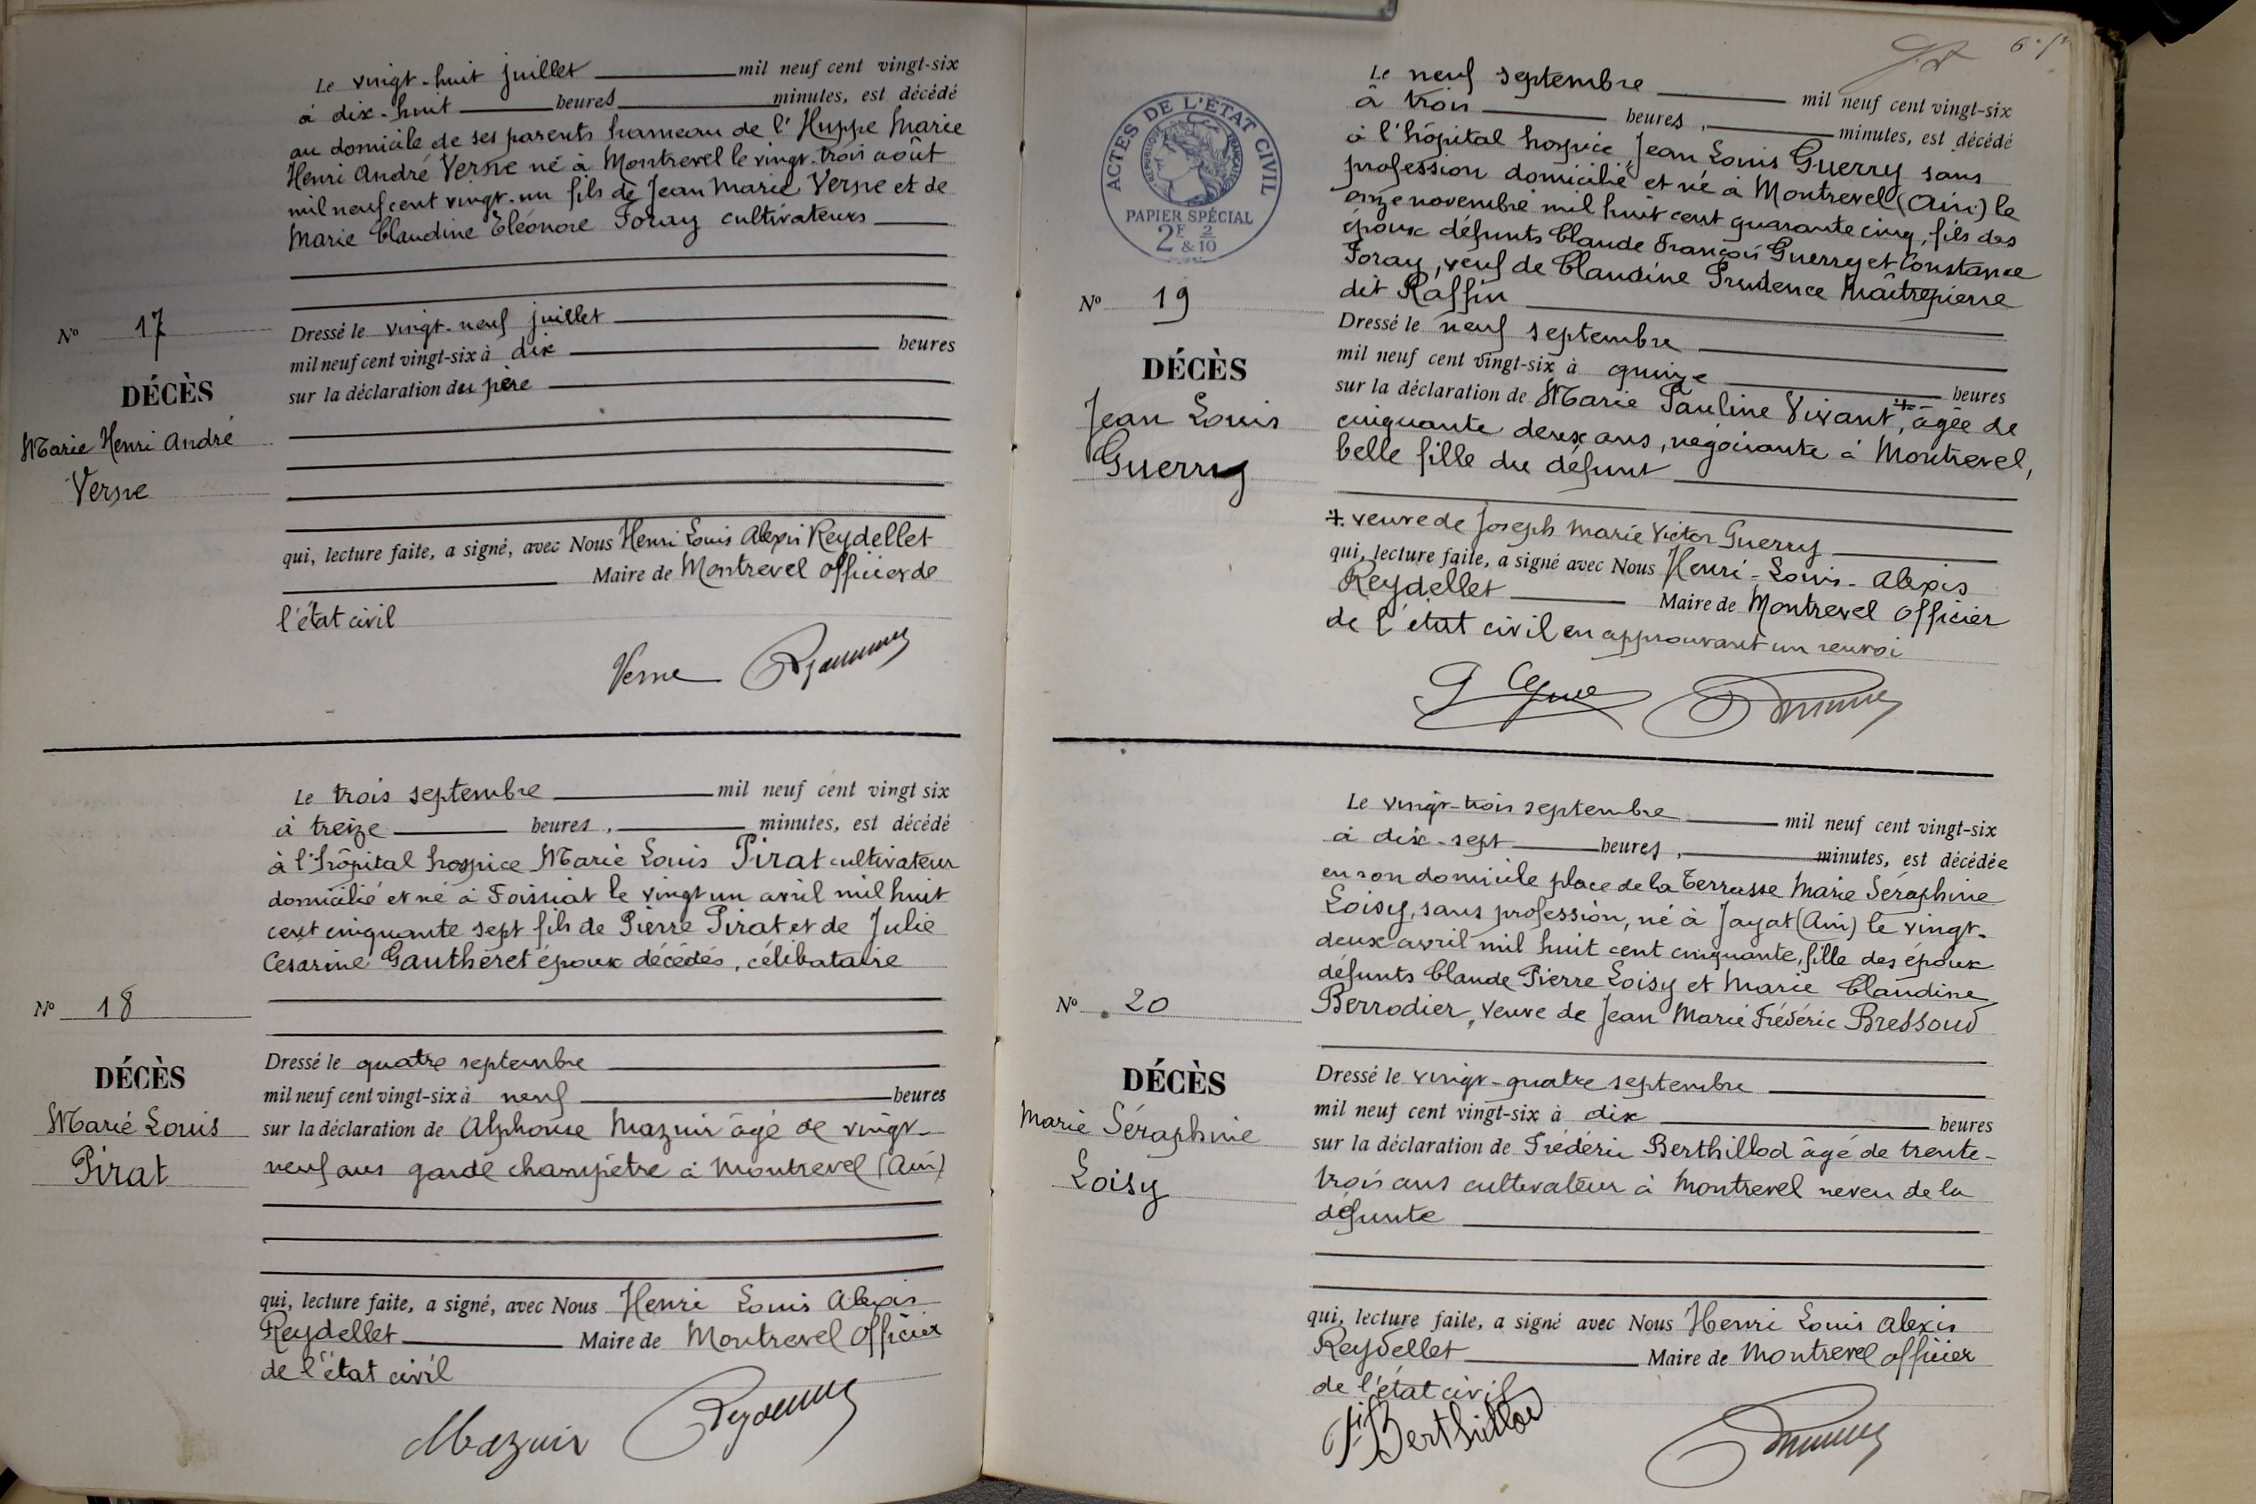 Le vingt-huit juillet mil neuf cent vingt-six
à dix-huit heures minutes, est décédé
au domicile de ses parents hameau de l'Huppe Marie
Henri André Verne né à Montrevel le vingt-trois août
mil neuf cent vingt-un fils de Jean Marie Verne et de
Marie Claudine Eléonore Foray cultivateurs
Nº 17
DÉCÈS
Marie Henri André
Verne
Dressé le vingt-neuf juillet
mil neuf cent vingt-six à dix heures
sur la déclaration du père
qui, lecture faite, a signé, avec Nous Henri Louis Alexis Reydellet
Maire de Montrevel officier de
l'état civil
Verne
Le trois septembre mil neuf cent vingt six
à treize heures, minutes, est décédé
à l'hôpital hospice Marie Louis Pirat cultivateur
domicilié et né à Foissiat le vingt un avril mil huit
cent cinquante sept fils de Pierre Pirat et de Julie
Césarine Gauthéret époux décédés, célibataire
Nº 18
DÉCÈS
Marie Louis
Pirat
Dressé le quatre septembre
mil neuf cent vingt-six à neuf heures
sur la déclaration de Alphonse Mazuir âgé de vingt-
neuf ans garde champêtre à Montrevel (Ain)
qui, lecture faite, a signé, avec Nous Henri Louis Alexis
Reydellet Maire de Montrevel officier
de l'état civil
Mazuir
ACTES DE L'ÉTAT CIVIL
RÉPUBLIQUE FRANÇAISE
PAPIER SPÉCIAL
2F & 2/10
Le neuf septembre mil neuf cent vingt-six
à trois heures, minutes, est décédé
à l'hôpital hospice Jean Louis Guerry sans
profession domicilié et né à Montrevel (Ain) le
onze novembre mil huit cent quarante cinq, fils des
époux défunts Claude François Guerry et Constance
Foray, veuf de Claudine Prudence Maîtrepierre
dit Raffin
Nº 19
DÉCÈS
Jean Louis
Guerry
Dressé le neuf septembre
mil neuf cent vingt-six à quinze heures
sur la déclaration de Marie Pauline Vivant, âgée de
cinquante deux ans, négociante à Montrevel,
belle fille du défunt
veuve de Joseph Marie Victor Guerry
qui, lecture faite, a signé avec Nous Henri-Louis-Alexis
Reydellet Maire de Montrevel officier
de l'état civil en approuvant un renvoi
Le vingt-trois septembre mil neuf cent vingt-six
à dix-sept heures, minutes, est décédée
en son domicile place de la Terrasse Marie Séraphine
Loisy, sans profession, né à Jayat (Ain) le vingt-
deux avril mil huit cent cinquante, fille des époux
défunts Claude Pierre Loisy et Marie Claudine
Berrodier, veuve de Jean Marie Frédéric Bressoud
Nº 20
DÉCÈS
Marie Séraphine
Loisy
Dressé le vingt-quatre septembre
mil neuf cent vingt-six à dix heures
sur la déclaration de Frédéric Berthillod âgé de trente-
trois ans cultivateur à Montrevel neveu de la
défunte
qui, lecture faite, a signé avec Nous Henri Louis Alexis
Reydellet Maire de Montrevel officier
de l'état civil
Berthillod